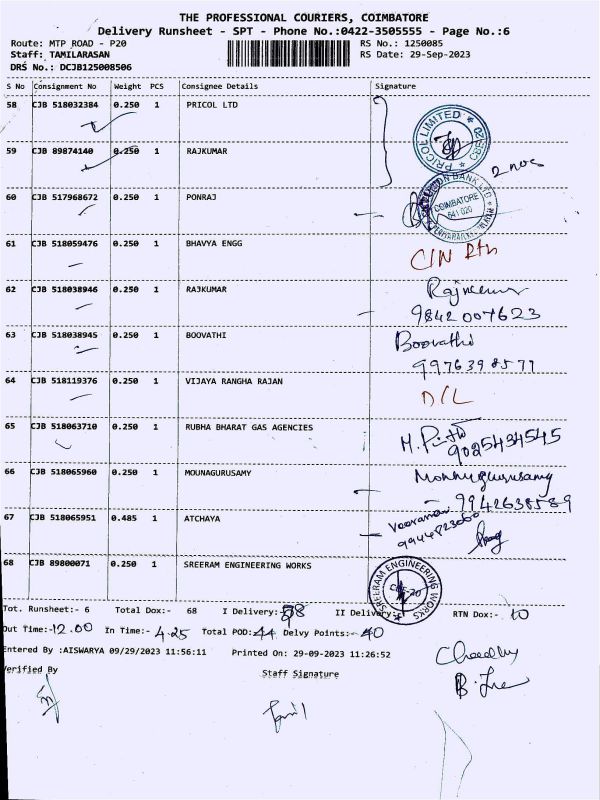 THE PROFESSIONAL COURIERS, COIMBATORE
Delivery Runsheet - SPT - Phone No.:0422-3505555 - Page No.:6
Route: MTP ROAD - P20 RS No.: 1250085
Staff: TAMILARASAN RS Date: 29-Sep-2023
DRS No.: DCJB125008506
S No Consignment No Weight PCS Consignee Details Signature
58 CJB 518032384 0.250 1 PRICOL LTD
PRICOL LIMITED CBE-20
59 CJB 89874140 0.250 1 RAJKUMAR
2 nos
60 CJB 517968672 0.250 1 PONRAJ
BANK LTD COIMBATORE 641 020
61 CJB 518059476 0.250 1 BHAVYA ENGG
C/N Rtn
62 CJB 518038946 0.250 1 RAJKUMAR Rajkumar
9842007623
63 CJB 518038945 0.250 1 BOOVATHI Boovathi
9976398577
64 CJB 518119376 0.250 1 VIJAYA RANGHA RAJAN
D/L
65 CJB 518063710 0.250 1 RUBHA BHARAT GAS AGENCIES
9025434545
66 CJB 518065960 0.250 1 MOUNAGURUSAMY
9942638589
67 CJB 518065951 0.485 1 ATCHAYA
68 CJB 89800071 0.250 1 SREERAM ENGINEERING WORKS
SREERAM ENGINEERING WORKS CBE-20
Tot. Runsheet:- 6 Total Dox:- 68 I Delivery:- 58 II Delivery:- RTN Dox:- 10
Out Time:-12.00 In Time:- 4.25 Total POD:44 Delvy Points:- 40
Entered By :AISWARYA 09/29/2023 11:56:11 Printed On: 29-09-2023 11:26:52
Verified By Staff Signature